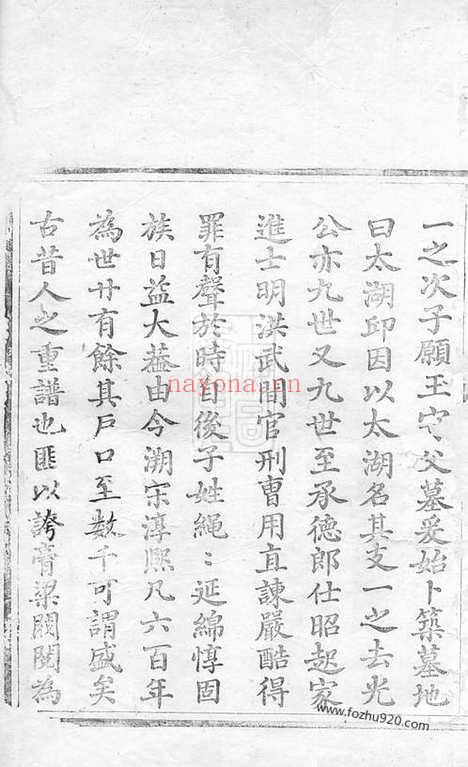 一之次子願王守父墓爰始卜築墓地
曰太湖邱因以太湖名其支一之去光
公亦九世又九世至承德郎仕昭起家
進士明洪武間官刑曹用直諫嚴酷得
罪有聲於時自後子姓繩：延綿惇固
族日益大蓋由今溯宋淳熙凡六百年
為世廿有餘其戶口至數千可謂盛矣
古昔人之重譜也匪以誇膏粱閥閱為
nayona.cn
www.fozhu920.com